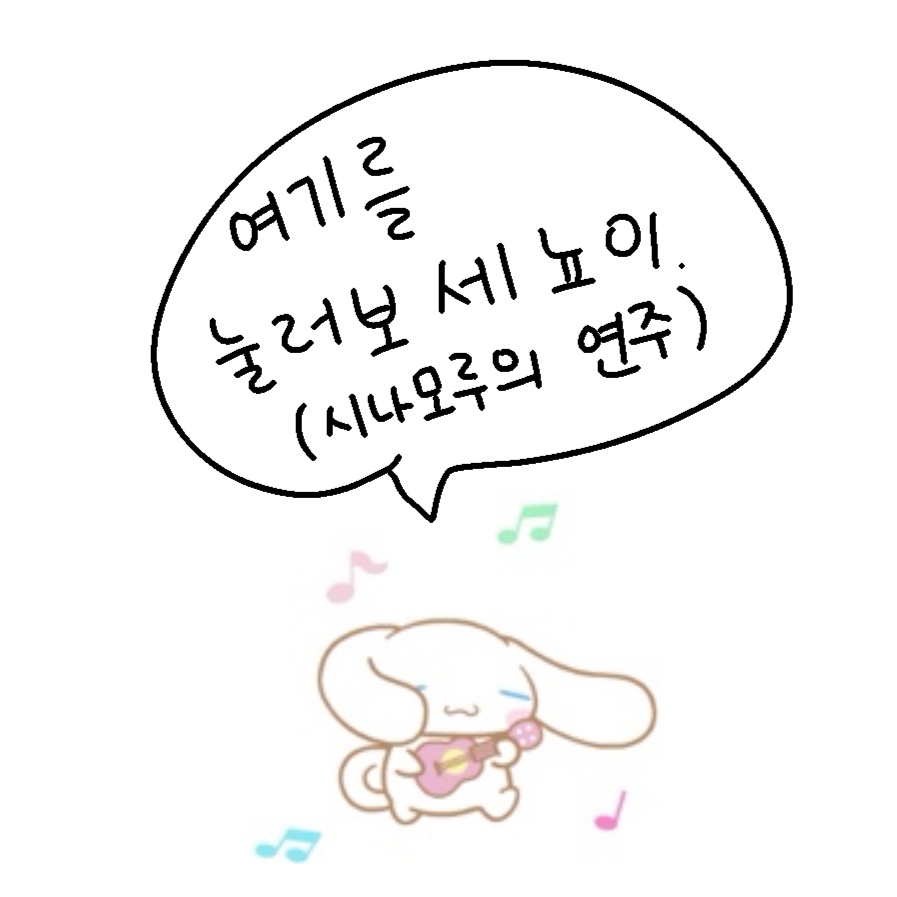 여기를
눌러보세뇨이.
(시나모루의 연주)